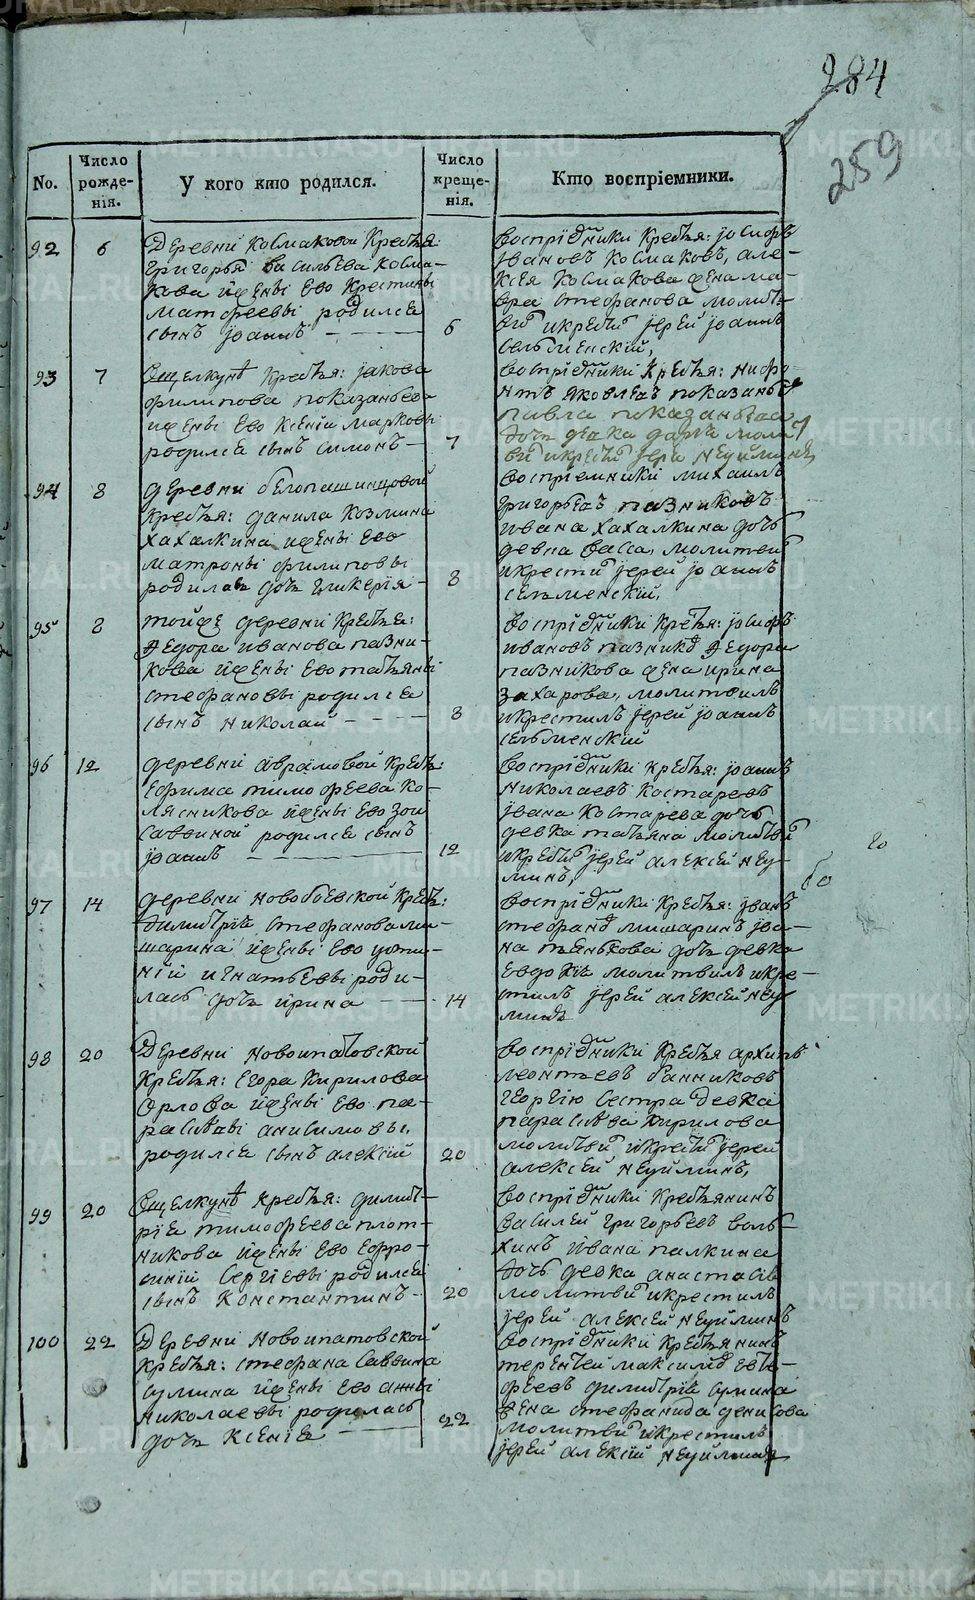 284
259
No.
Число рожде-нія.
У кого кто родился.
Число креще-нія.
Кто воспріемники.
92
6
Деревни Космаковой Крестья:
Григорья Васильева Косма-
кова и жены ево Кристины
Матфеевы родился
сынъ Іоаннъ
6
Воспріемники Крестья:
Івановъ Космаковъ, Але-
ксея Космакова жена Ма-
вра Стефанова молит-
вилъ и крестилъ Іерей Іоаннъ
Сельменскій,
93
7
Вщелкунѣ Крестья: Іакова
Филипова Показаньева
и жены ево Ксеніи Марковы
родился сынъ Симонъ
7
Воспріемники Крестья:
Яковлевъ Показаньевъ
Павла Показаньева
дочь девка Дарья
и крестилъ Іерей Неуйминъ
94
8
Деревни Белопашинцовой
Крестья: Данила Козмина
Хахалкина и жены ево
Матроны Филиповы
родилась дочь Гликерія
8
Воспріемники Михаилъ
Григорьевъ Пазниковъ
Ивана Хахалкина дочь
девка Васса, молитвилъ
и крестилъ Іерей Іоаннъ
Сельменскій,
95
8
Тойже деревни Крестья:
Федора Иванова Пазни-
кова и жены ево Татьяны
Стефановы родился
сынъ Николай
8
Воспріемники Крестья:
Ивановъ Пазниковъ Федора
Пазникова жена Ирина
Захарова, молитвилъ
и крестилъ Іерей Іоаннъ
Сельменскій
96
12
Деревни Аврамовой Крестья:
Ефима Тимофеева Ко-
лясникова и жены ево Зои
Саввиной родился сынъ
Іоаннъ
12
Воспріемники Крестья: Іоаннъ
Николаевъ Костаревъ
Івана Костарева дочь
девка Татьяна молитвилъ
и крестилъ Іерей Алексей Неу-
минъ,
97
14
Деревни Новобоевской Крестья:
Димитрія Стефанова Ми-
шарина и жены ево Усти-
ніи Игнатьевы роди-
лась дочь Ирина
14
Воспріемники Крестья: Іванъ
Стефановъ Мишаринъ Іва-
на дочь девка
Евдокія молитвилъ и кре-
стилъ Іерей Алексей Неу
минъ
98
20
Деревни Новоипатовской
Крестья: Егора Кирилова
Орлова и жены ево Па-
раскевы Анисимовы,
родился сынъ Алексій
20
Воспріемники Крестья Архипъ
Леонтьевъ Банниковъ
Георгію сестра девка
Параскева Кирилова
молитвилъ и крестилъ Іерей
Алексей Неуйминъ,
99
20
Вщелкунѣ Крестья: Димит-
рія Тимофеева Плот-
никова и жены ево Ефро-
синіи Сергіевы родился
сынъ Константинъ
20
Воспріемники Крестьянинъ
Василей Григорьевъ Воль-
хинъ Ивана Палкина
дочь девка Анастасія
молитвилъ и крестилъ
Іерей Алексей Неуйминъ
100
22
Деревни Новоипатовской
Крестья: Стефана Саввина
Сумина и жены ево Анны
Николаевы родилась
дочь Ксенія
22
Воспріемники Крестьянинъ
Терентей Максимовъ Ев-
феевъ Димитрія Сумина
жена Стефанида Денисова
молитвилъ и крестилъ
Іерей Алексій Неуйминъ
METRIKI.GASO-URAL.RU